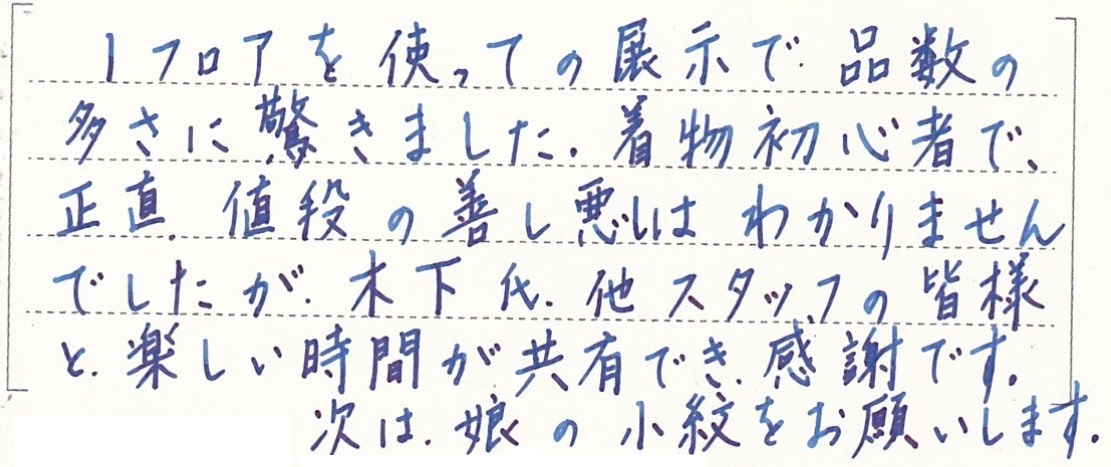 1フロアを使っての展示で、品数の
多さに驚きました。着物初心者で、
正直、値段の善し悪しはわかりません
でしたが、木下氏、他スタッフの皆様
と、楽しい時間が共有でき、感謝です。
次は、娘の小紋をお願いします。